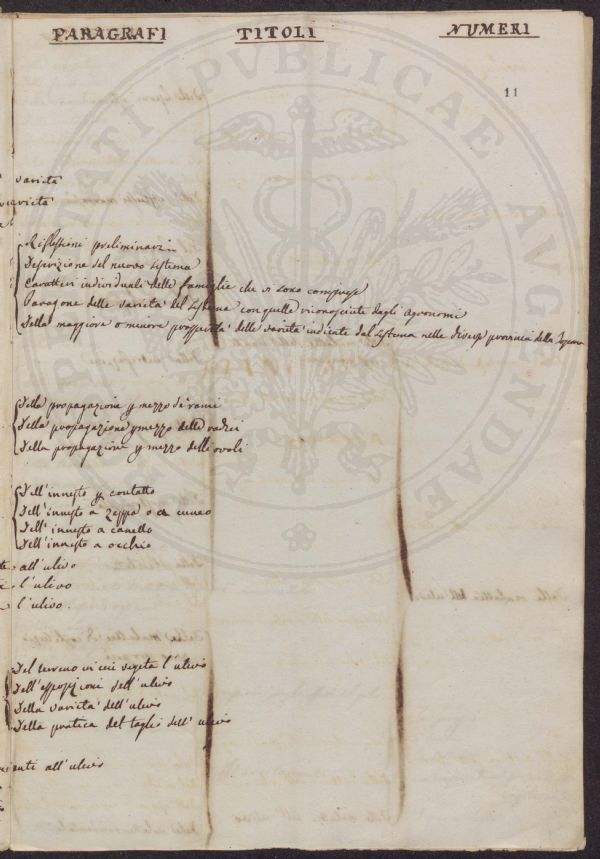 PARAGRAFI TITOLI NUMERI
11
varietà
varietà
Riflessioni preliminari
Descrizione del nuovo sistema
Caratteri individuali delle famiglie che vi sono comprese
Paragone delle varietà del sistema con quelle riconosciute dagli Agronomi
Della maggiore o minore prosperità delle varietà indicate dal sistema nelle diverse provincie della Toscana
Della propagazione p mezzo di rami
Della propagazione p mezzo delle radici
Della propagazione p mezzo delli ovoli
Dell'innesto p contatto
Dell'innesto a zeppa o a cuneo
Dell'innesto a canello
Dell'innesto a occhio
all'ulivo
l'ulivo
l'ulivo.
Del terreno in cui vegeta l'ulivo
Dell'esposizione dell'ulivo
Della varietà dell'ulivo
Della pratica del taglio dell'ulivo
all'ulivo
PUBLICAE